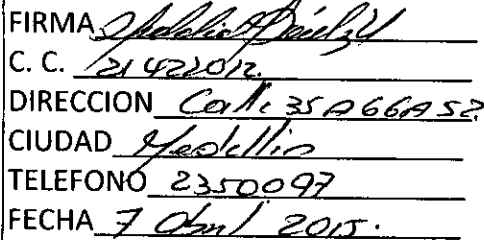 FIRMA
C. C. 21422012.
DIRECCION Calle 35A 66A 52
CIUDAD Medellin
TELEFONO 2350097
FECHA 7 Abril 2015.